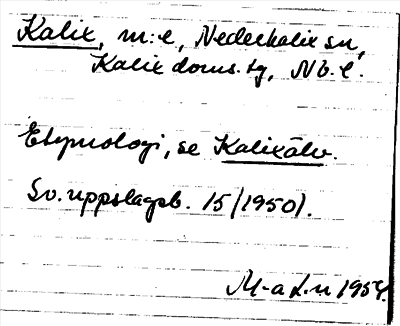 Kalix, m:e, Nederkalix sn,
Kalix doms. tg, Nb. l.
Etymologi, se Kalixälv.
Sv. uppslagsb. 15 (1950).
M-a L-n 1954.